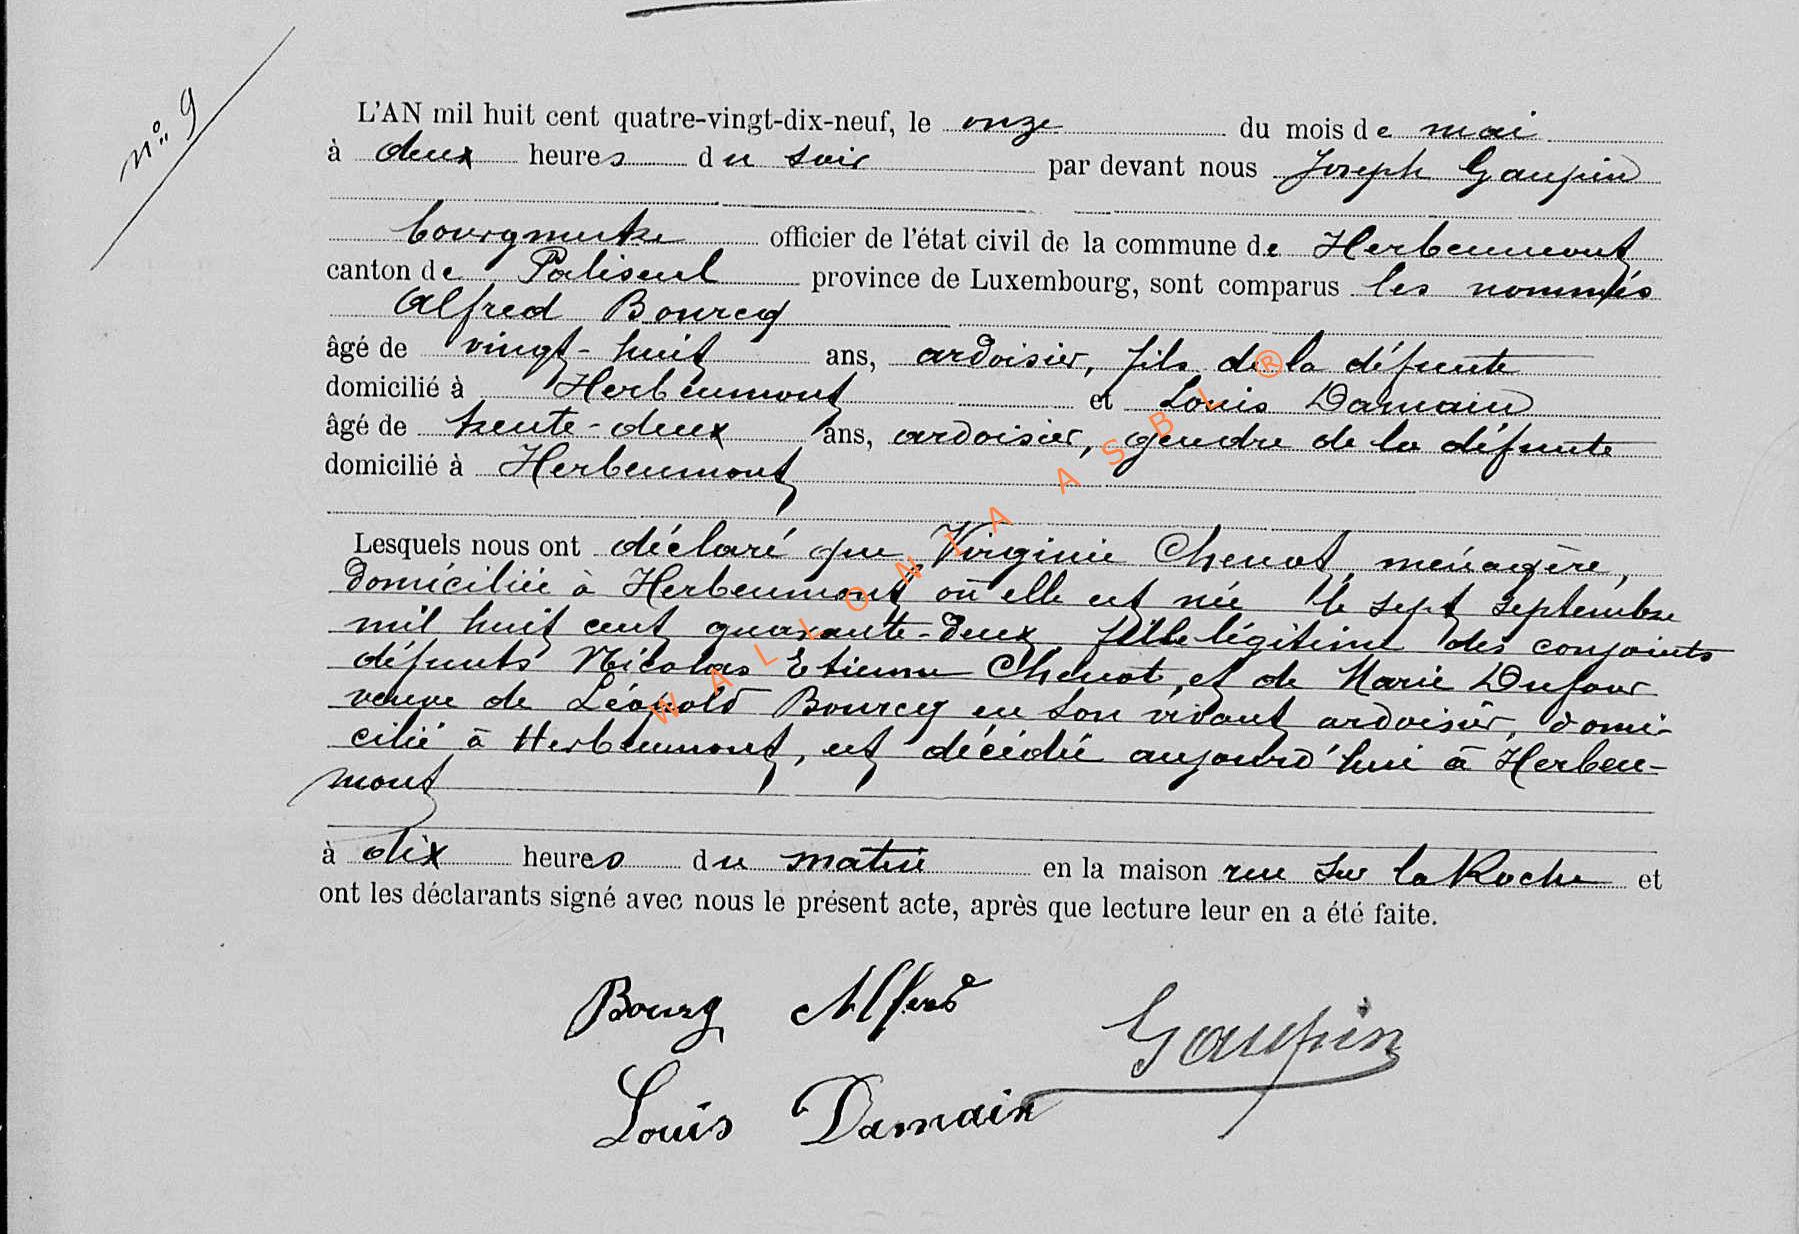 n° 9
L'AN mil huit cent quatre-vingt-dix-neuf, le onze du mois de mai
à deux heures du soir par devant nous Joseph Gaupin
bourgmestre officier de l'état civil de la commune de Herbeumont
canton de Paliseul province de Luxembourg, sont comparus les nommés
Alfred Bourcq
âgé de vingt-huit ans, ardoisier, fils de la défunte
domicilié à Herbeumont et Louis Damain
âgé de trente-deux ans, ardoisier, gendre de la défunte
domicilié à Herbeumont
Lesquels nous ont déclaré que Virginie Chenot, ménagère,
domiciliée à Herbeumont où elle est née le sept septembre
mil huit cent quarante-deux, fille légitime des conjoints
défunts Nicolas Etienne Chenot, et de Marie Dufour
veuve de Léopold Bourcq en son vivant ardoisier, domi-
cilié à Herbeumont, est décédée aujourd'hui à Herbeu-
mont
à dix heures du matin en la maison rue sur la Roche et
ont les déclarants signé avec nous le présent acte, après que lecture leur en a été faite.
Bourcq Alfred
Gaupin
Louis Damain
WALLONIA ASBL ®